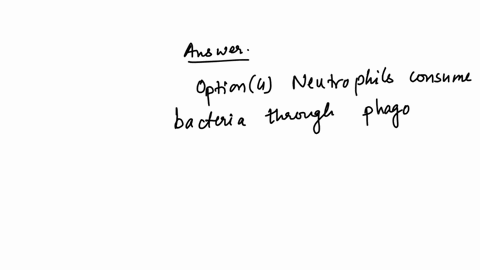 Answer.
Option(4) Neutrophils consume
bacteria through phago